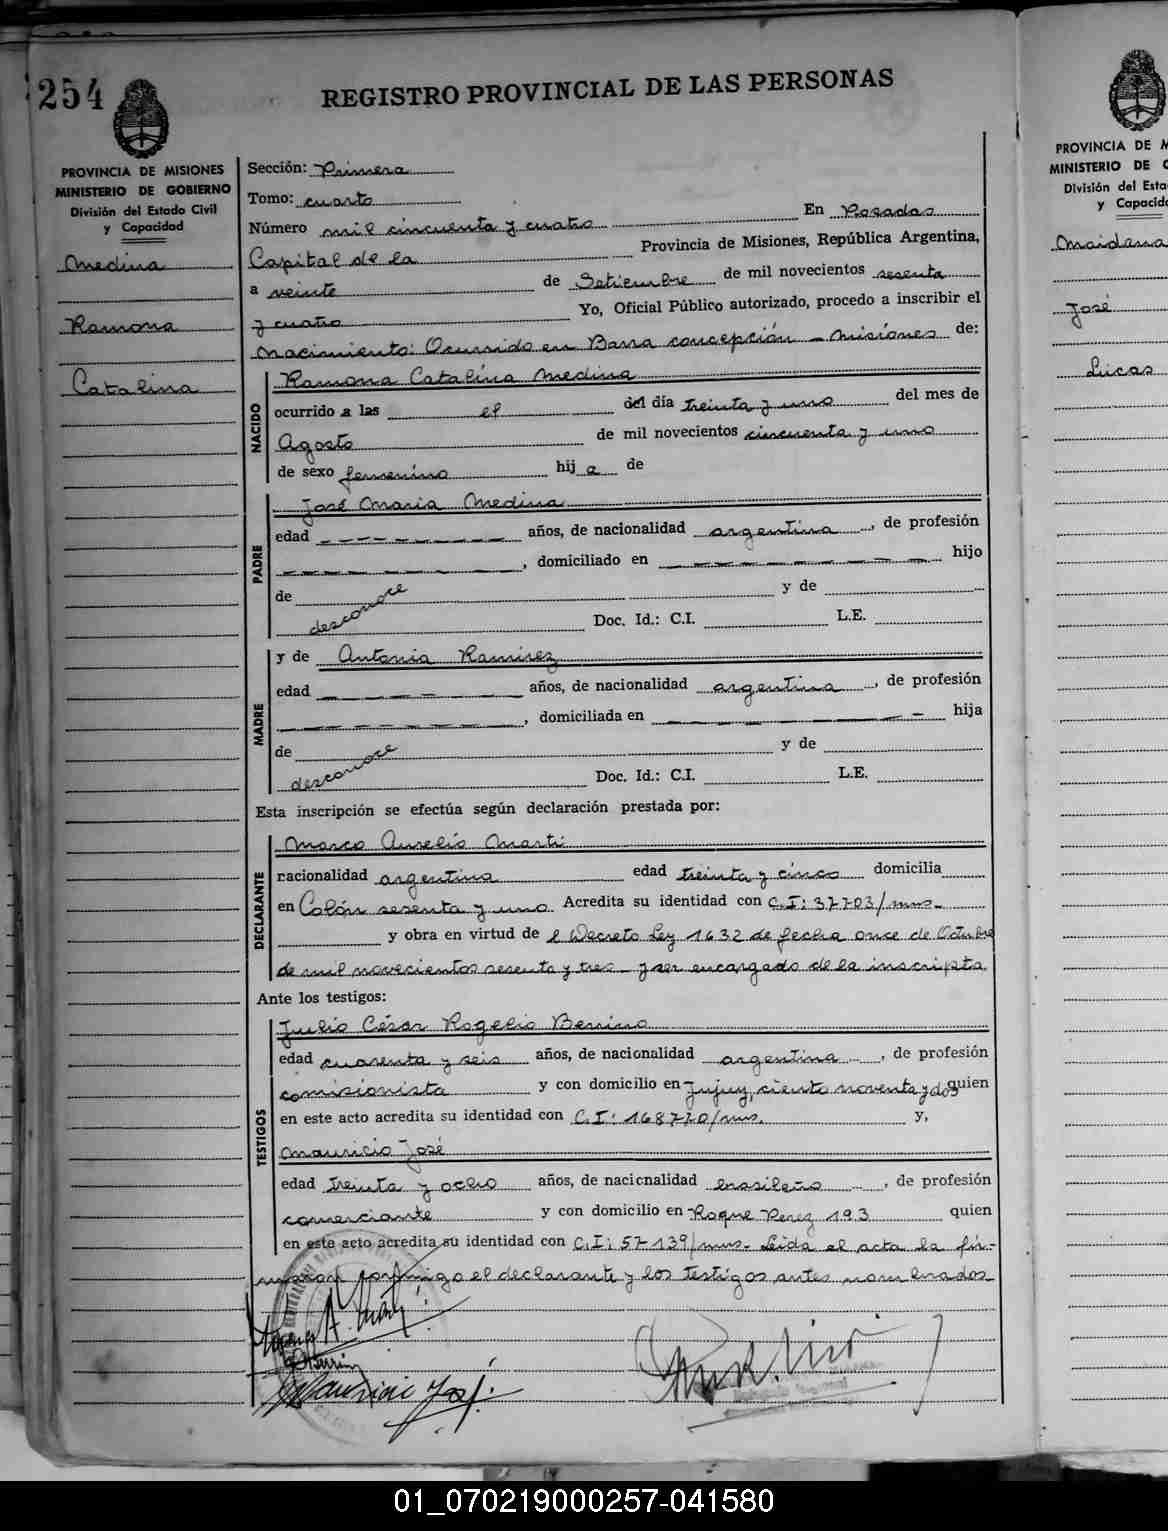 254
REGISTRO PROVINCIAL DE LAS PERSONAS
PROVINCIA DE MISIONES
MINISTERIO DE GOBIERNO
División del Estado Civil
y Capacidad
Medina
Ramona
Catalina
Sección: Primera
Tomo: cuarto
Número mil cincuenta y cuatro En Posadas
Capital de la Provincia de Misiones, República Argentina,
a veinte de Setiembre de mil novecientos sesenta
y cuatro Yo, Oficial Público autorizado, procedo a inscribir el
nacimiento: Ocurrido en Barra concepción - misiones de:
NACIDO
Ramona Catalina Medina
ocurrido a las el del día treinta y uno del mes de
Agosto de mil novecientos cincuenta y uno
de sexo femenino hij a de
PADRE
José Maria Medina
edad años, de nacionalidad argentina, de profesión
, domiciliado en hijo
de desconoce y de
Doc. Id.: C.I. L.E.
MADRE
y de Antonia Ramirez
edad años, de nacionalidad argentina, de profesión
, domiciliada en hija
de desconoce y de
Doc. Id.: C.I. L.E.
Esta inscripción se efectúa según declaración prestada por:
DECLARANTE
Marco Aurelio Marti
nacionalidad argentina edad treinta y cinco domicilia
en Colón sesenta y uno Acredita su identidad con C.I: 37703/mns-
y obra en virtud de l Decreto Ley 1632 de fecha once de Octubre
de mil novecientos sesenta y tres - y ser encargado de la inscripta
Ante los testigos:
TESTIGOS
Julio César Rogelio Berrino
edad cuarenta y seis años, de nacionalidad argentina, de profesión
comisionista y con domicilio en Jujuy, ciento noventa y dos quien
en este acto acredita su identidad con C.I: 168770/mns. y,
Mauricio José
edad treinta y ocho años, de nacionalidad brasileño, de profesión
comerciante y con domicilio en Roque Perez 193 quien
en este acto acredita su identidad con C.I: 57139/mns- Leida el acta la fir-
maron conmigo el declarante y los testigos antes nombrados
PROVINCIA DE M
MINISTERIO DE G
División del Esta
y Capacida
Maidana
José
Lucas
01_070219000257-041580